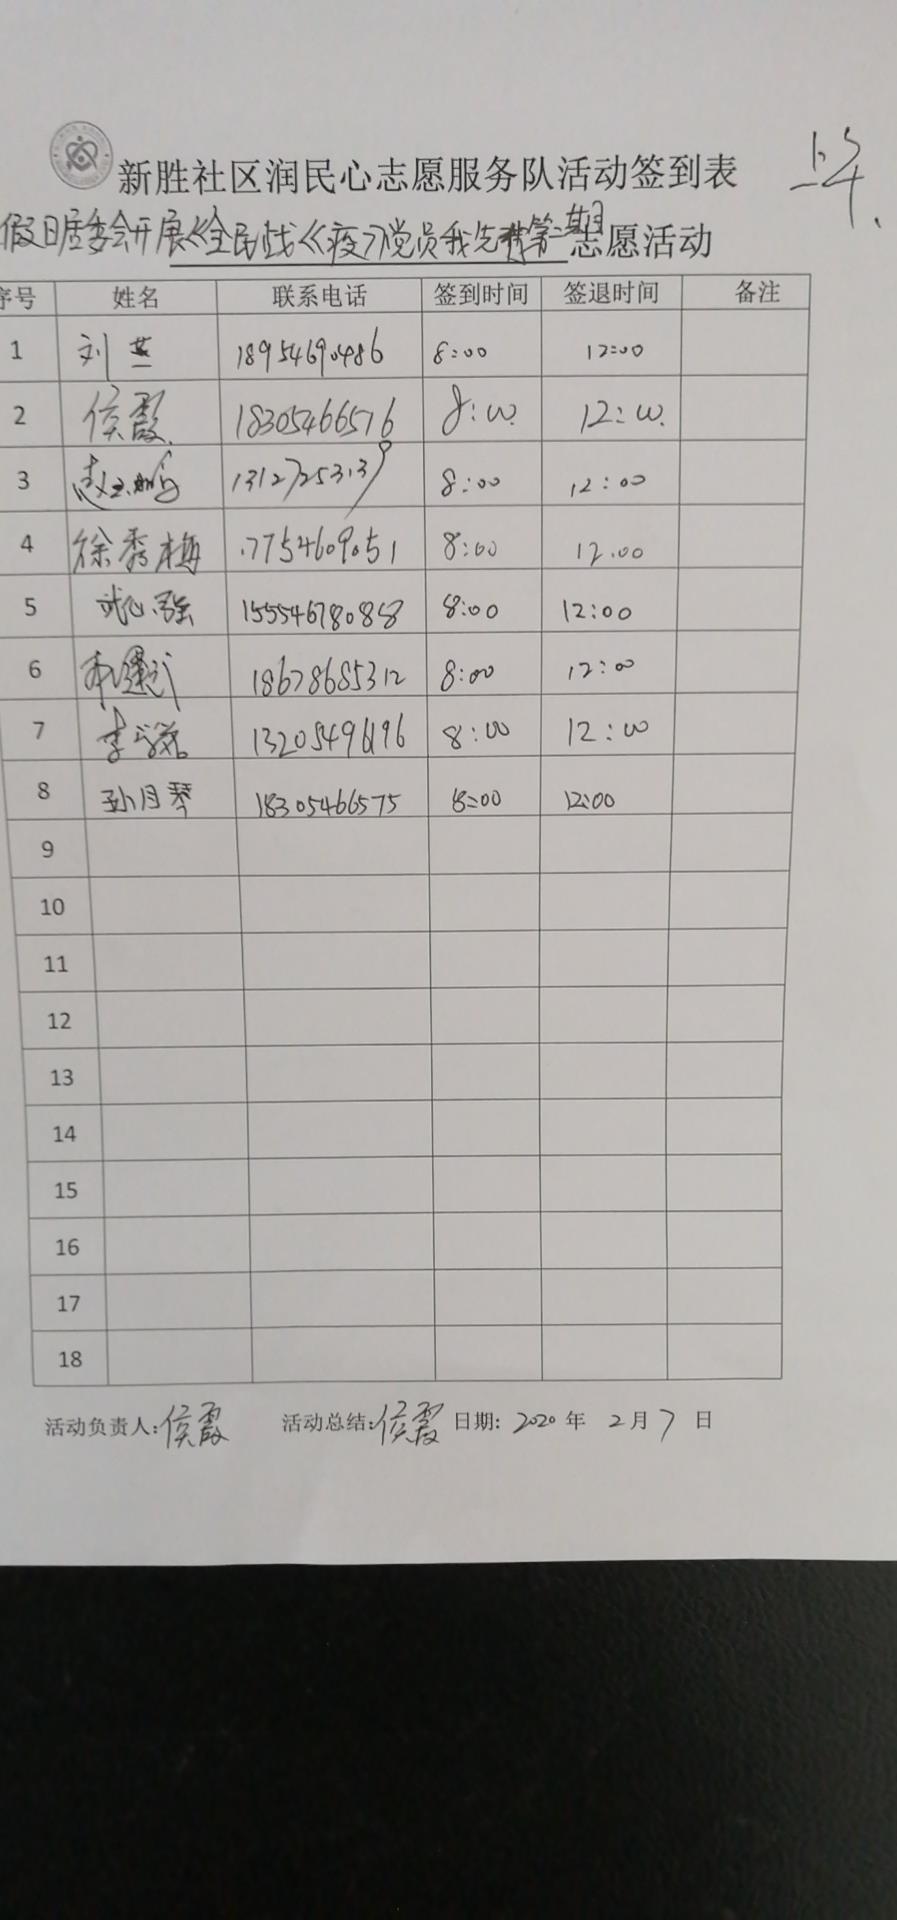 新胜社区润民心志愿服务队活动签到表
假日居委会开展《全民战《疫》党员我先 第二期 志愿活动
序号 姓名 联系电话 签到时间 签退时间 备注
1 刘 18954690486 8:00 12:00
2 侯霞 18305466576 8:00 12:00
3 13127253139 8:00 12:00
4 徐秀梅 17754609051 8:00 12:00
5 15554678088 8:00 12:00
6 18678685312 8:00 12:00
7 李 13205496196 8:00 12:00
8 孙月琴 18305466575 8:00 12:00
9
10
11
12
13
14
15
16
17
18
活动负责人:侯霞 活动总结:侯霞 日期: 2020 年 2 月 7 日